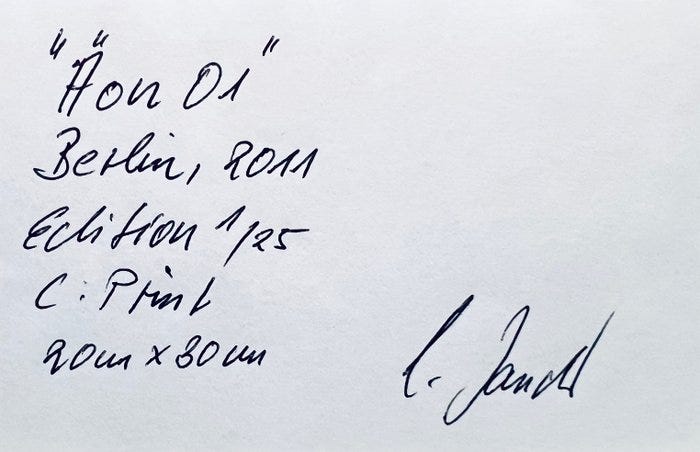 "Äon 01"
Berlin, 2011
Edition 1/25
C-Print
20cm x 30cm